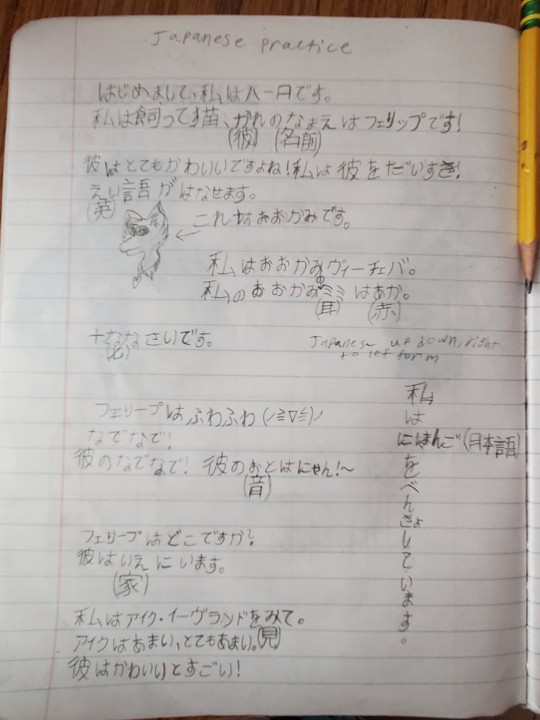 Japanese practice
はじめまして、私は八一月です。
私は飼ってす猫、かれのなまえはフェリップです!
(彼) (名前)
彼はとてもかわいいですよね!私は彼をだいすき!
えい語がはなせます。
(英)
これはおおかみです。
私はおおかみヴィーチェバ。
私のおおかみのミミはあか。
(耳) (赤)
十ななさいです。
(七)
Japanese up down, right to left form
フェリープはふわふわ(ﾉﾐ▽ﾐ)ﾉ
なでなで!
彼のなでなで! 彼のおとはにゃん!~
(音)
フェリープはどこですか?
彼はいえにいます。
(家)
私はアイク・イーヴランドをみて。
(見)
アイクはあまい、とてもあまい。
彼はかわいいとすごい!
私はにほんご(日本語)をべんきょしています。